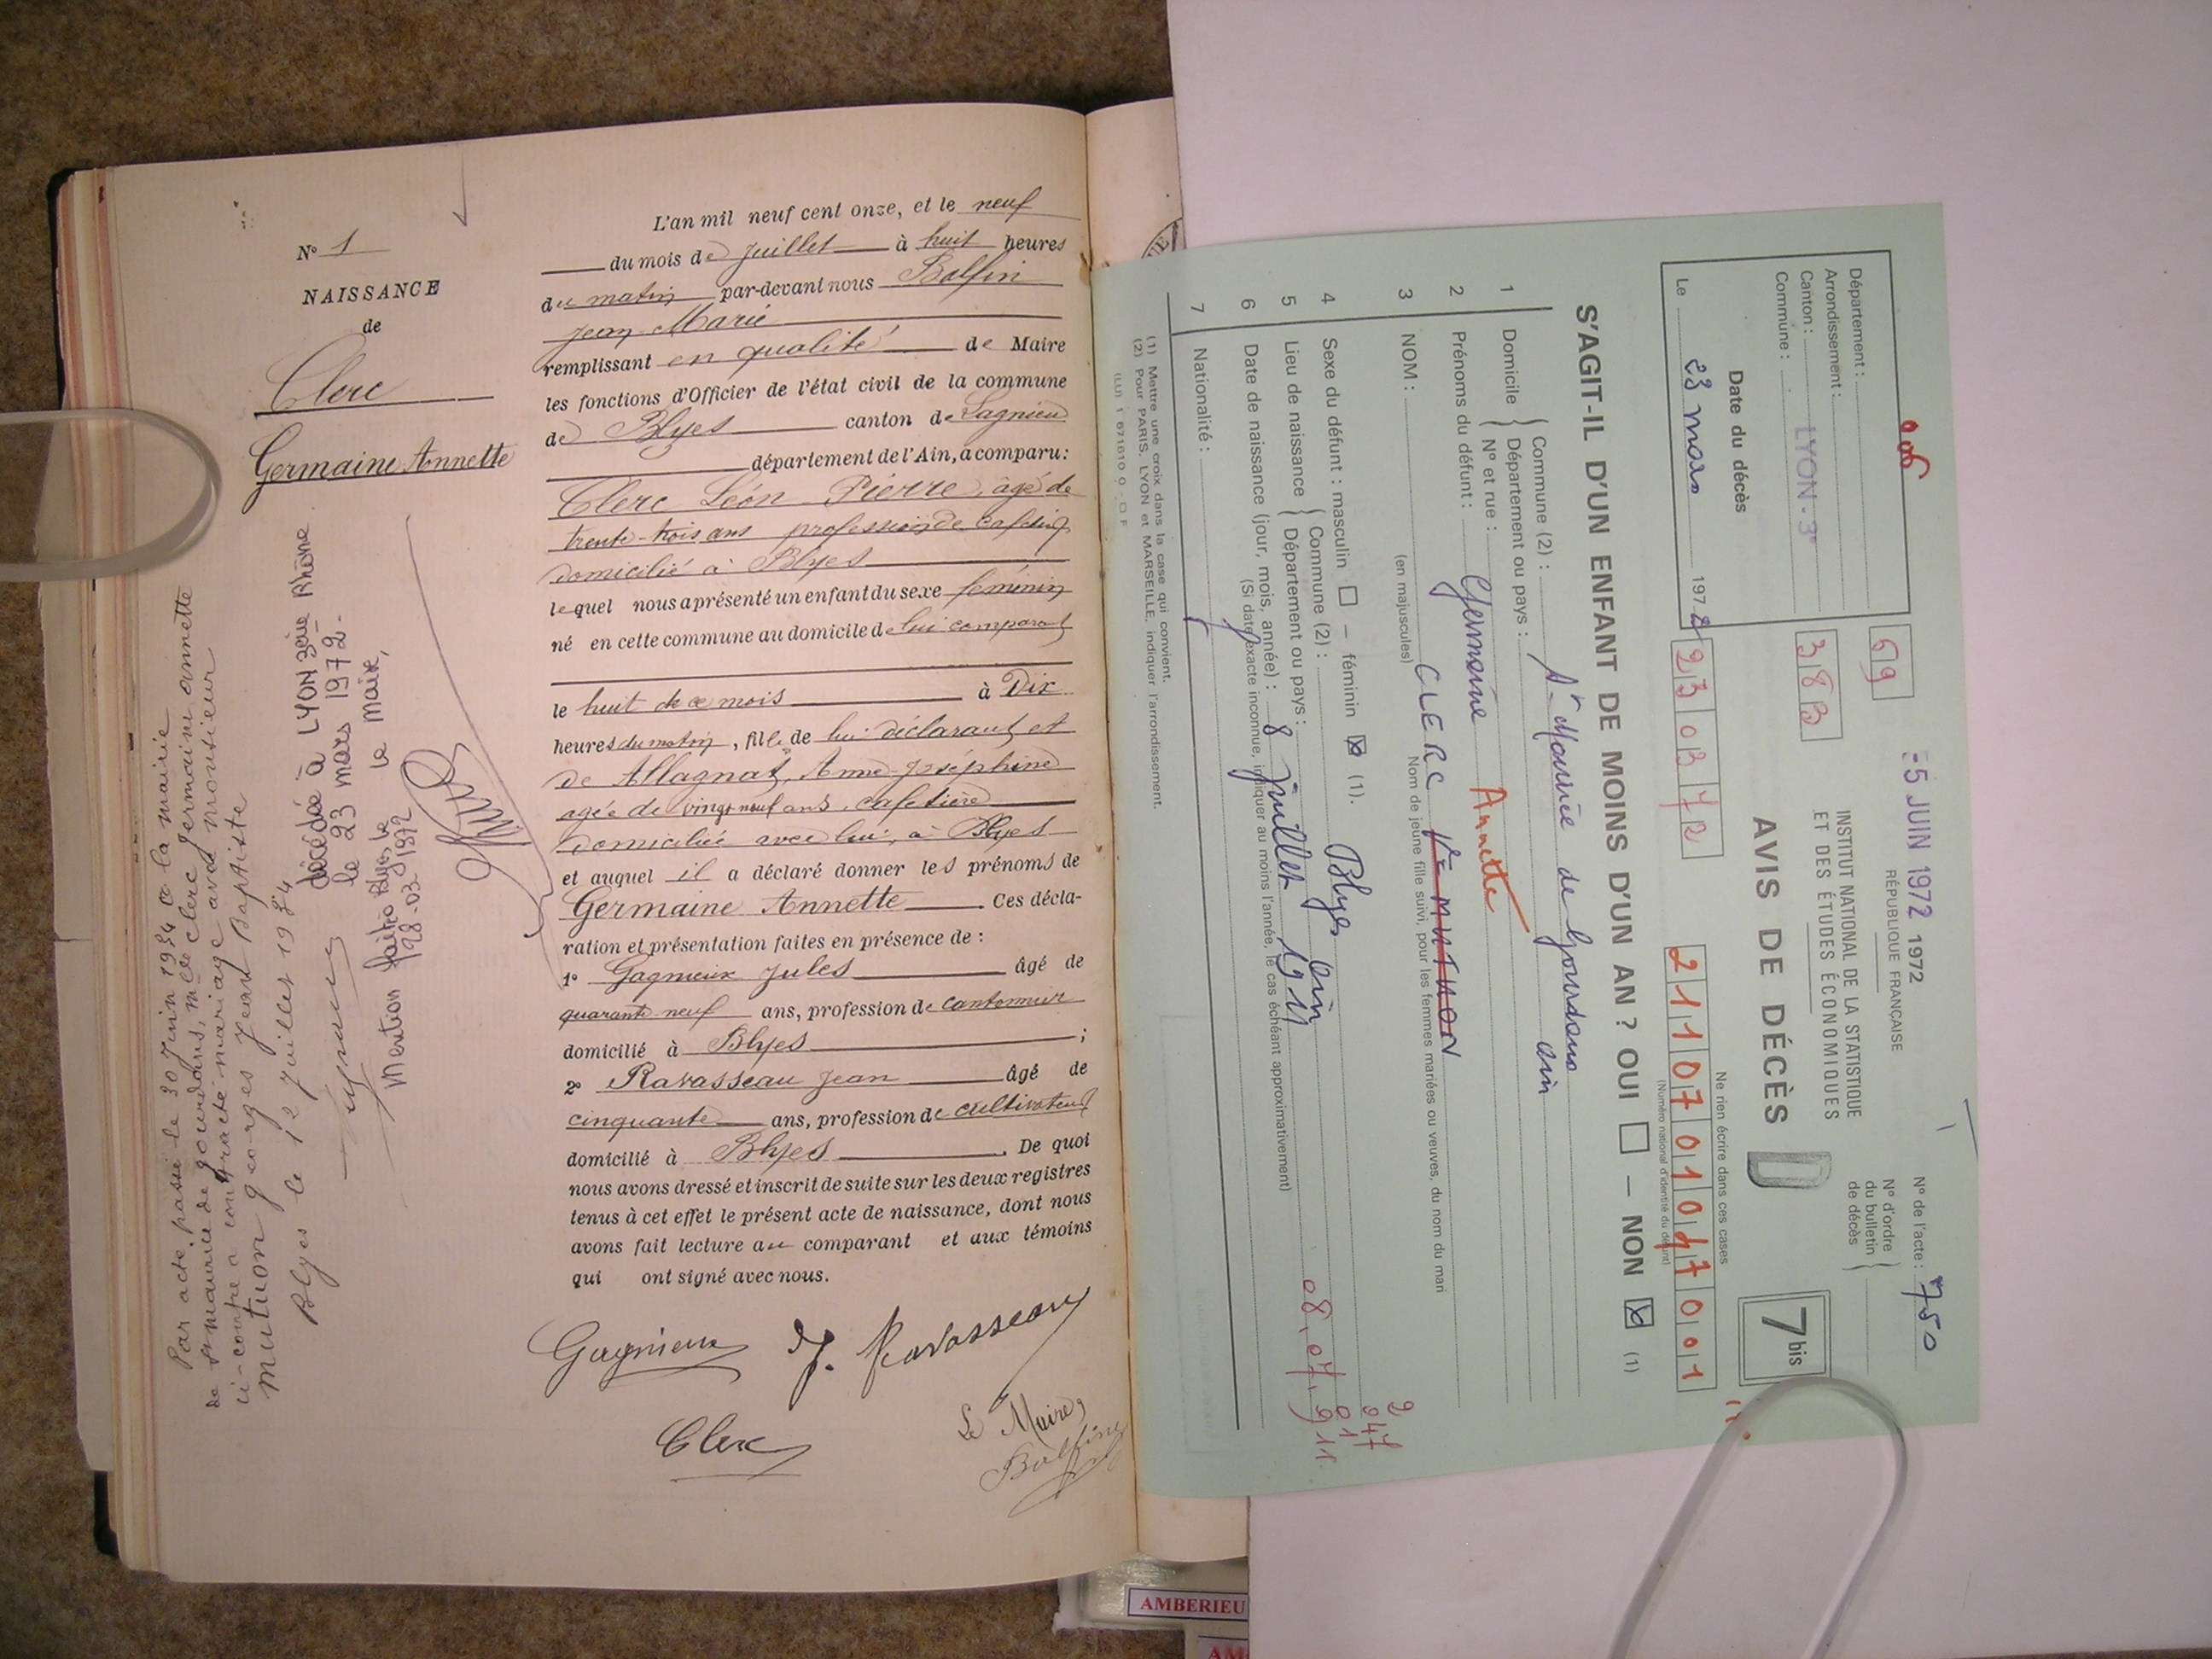 N° 1
NAISSANCE
de
Clerc
Germaine Annette
L'an mil neuf cent onze, et le neuf
du mois de Juillet à huit heures
du matin par-devant nous Balfin
Jean Marie
remplissant en qualité de Maire
les fonctions d'Officier de l'état civil de la commune
de Blyes canton de Lagnieu
département de l'Ain, a comparu:
Clerc Léon Pierre, âgé de
trente-trois ans profession de cafetier
domicilié à Blyes
lequel nous a présenté un enfant du sexe féminin
né en cette commune au domicile de lui comparant
le huit de ce mois à Dix
heures du matin, fille de lui déclarant et
de Allagnat, Anne Joséphine
agée de vingt neuf ans, cafetière
domiciliée avec lui, à Blyes
et auquel il a déclaré donner les prénoms de
Germaine Annette Ces décla-
ration et présentation faites en présence de :
1° Gagnieux Jules âgé de
quarante neuf ans, profession de cantonnier
domicilié à Blyes ;
2° Ravasseau Jean âgé de
cinquante ans, profession de cultivateur
domicilié à Blyes . De quoi
nous avons dressé et inscrit de suite sur les deux registres
tenus à cet effet le présent acte de naissance, dont nous
avons fait lecture au comparant et aux témoins
qui ont signé avec nous.
Gagnieux J. Ravasseau
Clerc
Le Maire,
Balfin
Par acte passé le 30 Juin 1934 à la mairie
de St maurice de gourdans, mlle Clerc Germaine annette
ci-contre a contracté mariage avec monsieur
mutuon georges Jean Baptiste
Blyes le 12 Juillet 1934
décédée à LYON 3eme Rhône
le 23 mars 1972.
le maire,
mention faite à Blyes le
28-03-1972
906
- 5 JUIN 1972 1972
RÉPUBLIQUE FRANÇAISE
INSTITUT NATIONAL DE LA STATISTIQUE
ET DES ÉTUDES ÉCONOMIQUES
N° de l'acte : 750
N° d'ordre
du bulletin
de décès
Département : 69
Arrondissement :
Canton : LYON - 3e
Commune : 383
AVIS DE DÉCÈS
D
7 bis
Date du décès
Le 23 mars 1972
23 03 72
Ne rien écrire dans ces cases
2 11 07 01 047 001
(Numéro national d'identité du défunt)
S'AGIT-IL D'UN ENFANT DE MOINS D'UN AN ? OUI – NON (1)
1 Domicile
Commune (2) : St Maurice de Gourdans
Département ou pays : ain
N° et rue :
2 Prénoms du défunt : Germaine Annette
3 NOM : CLERC Ve MUTUON
(en majuscules) Nom de jeune fille suivi, pour les femmes mariées ou veuves, du nom du mari
4 Sexe du défunt : masculin – féminin (1).
5 Lieu de naissance
Commune (2) : Blyes
Département ou pays : ain
6 Date de naissance (jour, mois, année) : 8 Juillet 1911
(Si date exacte inconnue, indiquer au moins l'année, le cas échéant approximativement)
08.07.911
2
047
01
7 Nationalité : F
(1) Mettre une croix dans la case qui convient.
(2) Pour PARIS, LYON et MARSEILLE, indiquer l'arrondissement.
AMBERIEU
AM